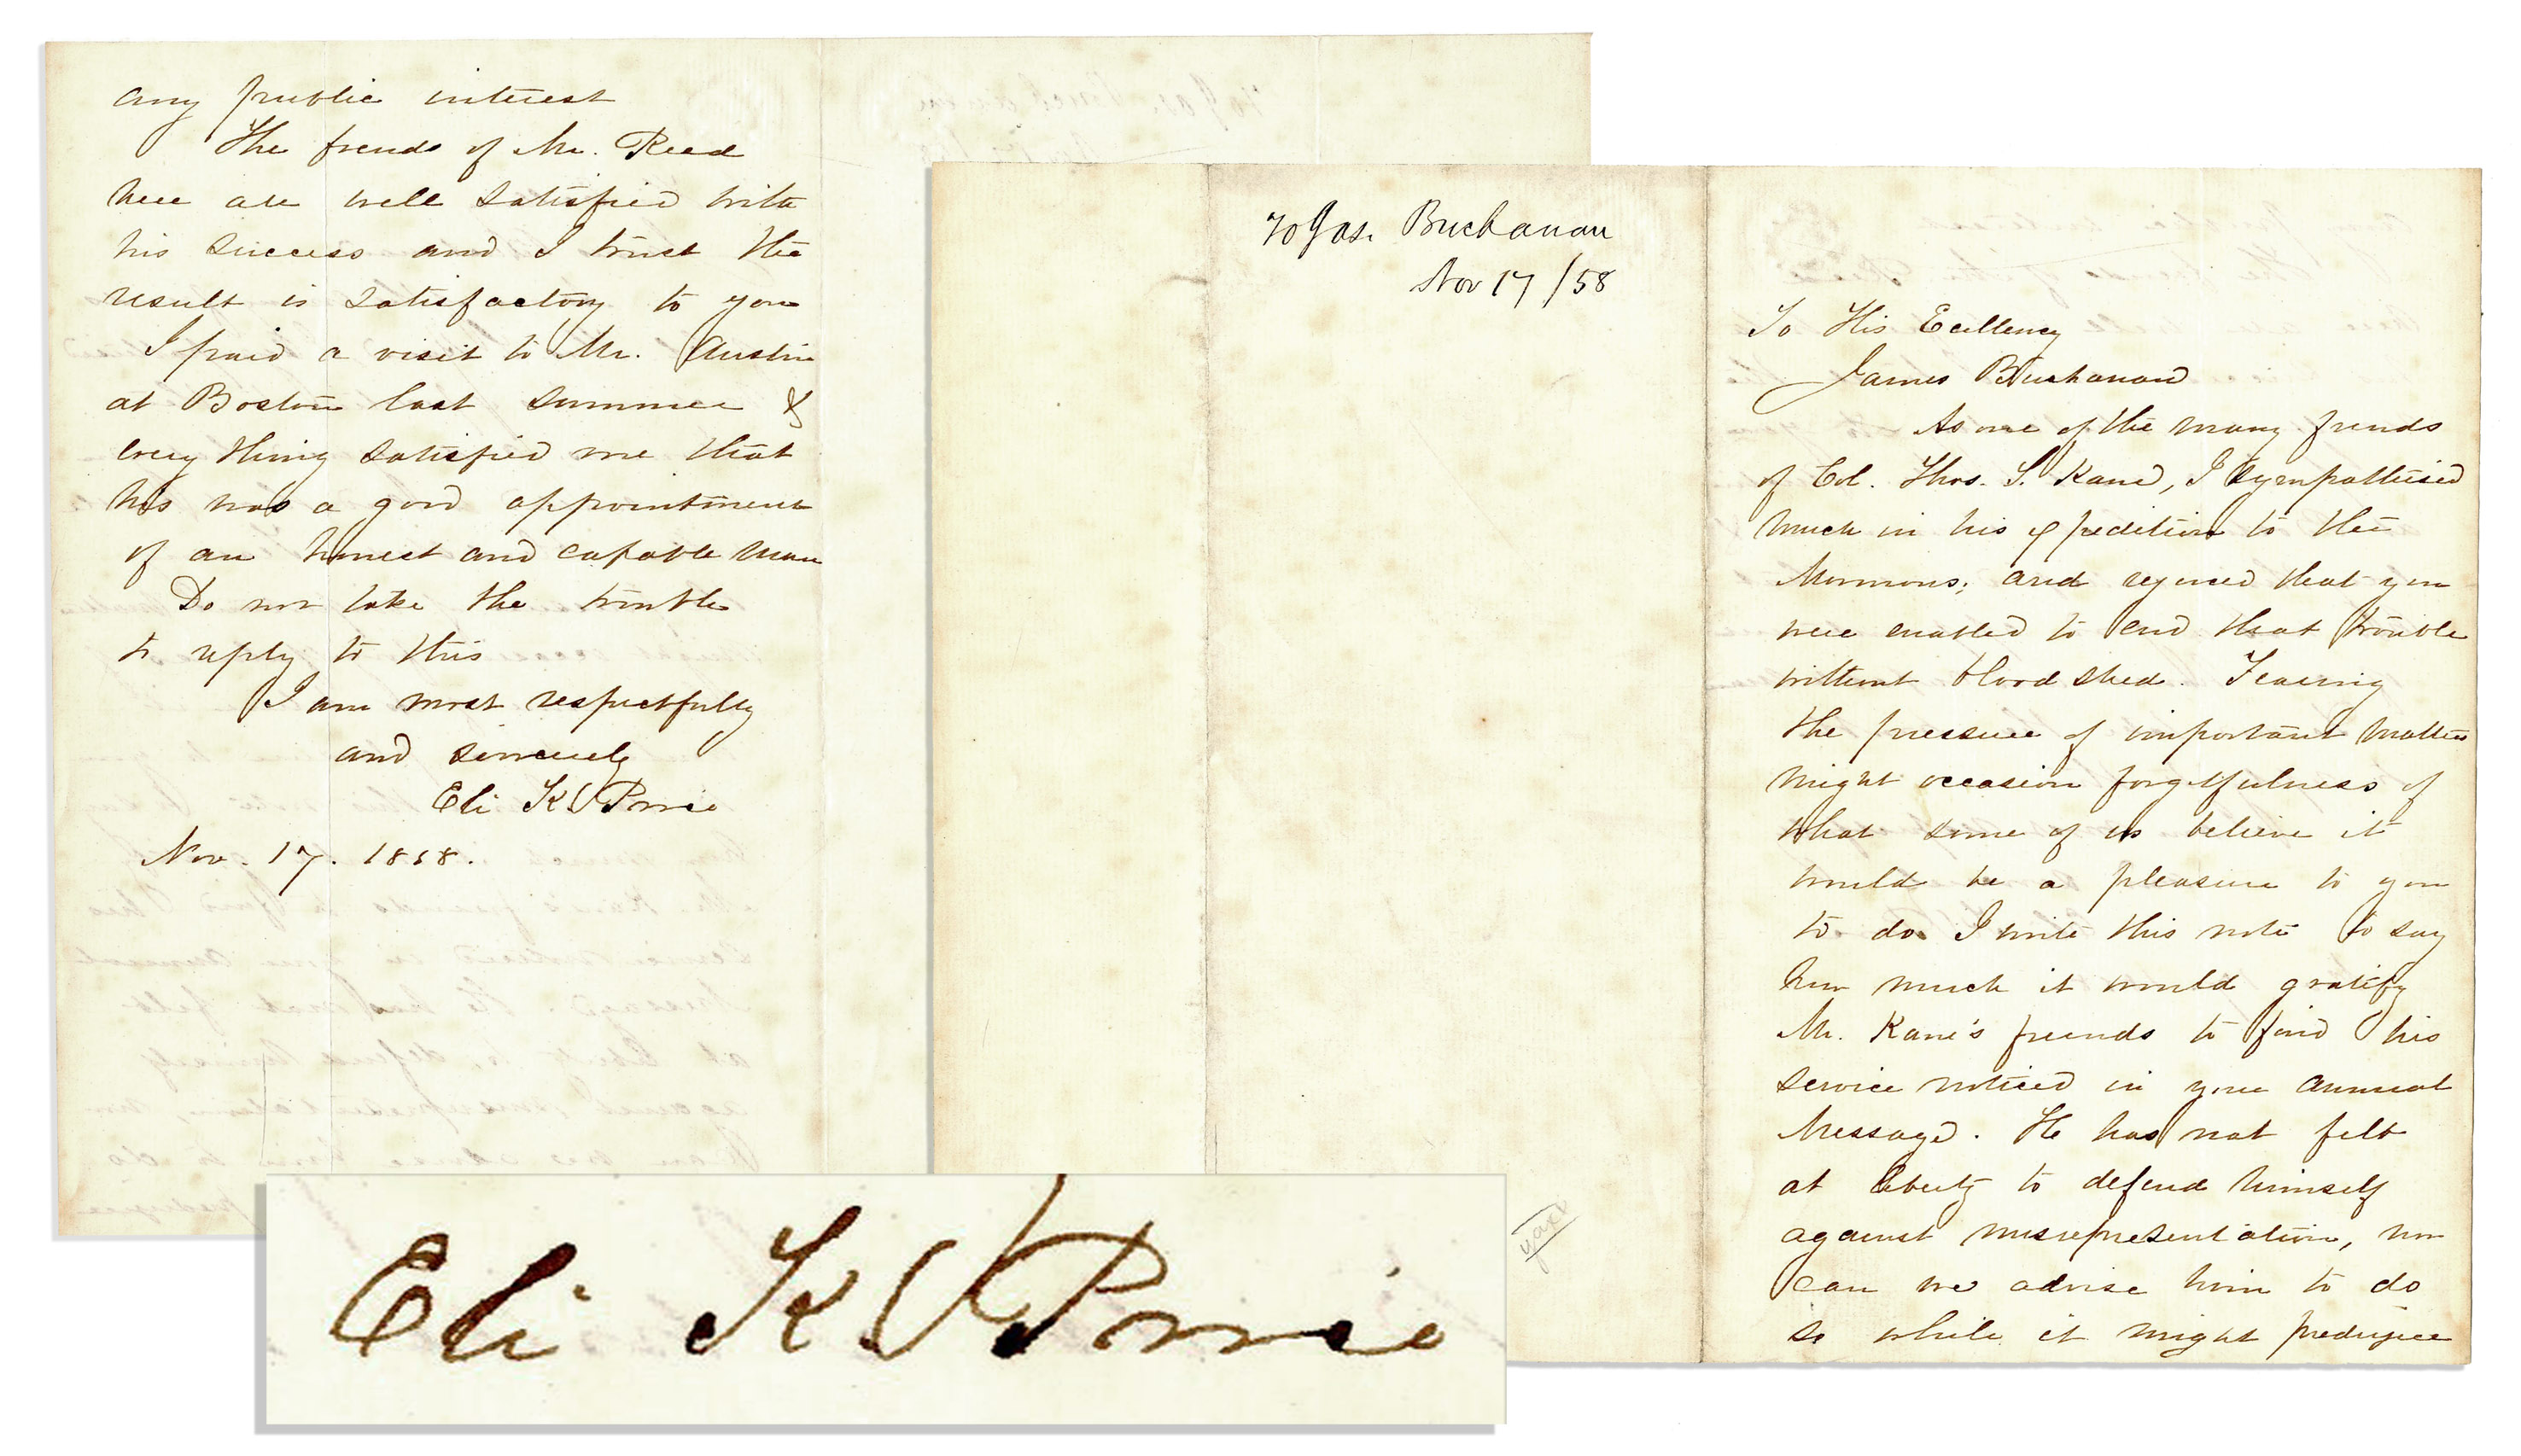 To Jas. Buchanan
Nov 17/58
To His Ecellency
James Buchanan
As one of the many friends
of Col. Thos. L. Kane, I sympathised
much in his expedition to the
Mormons; and rejoiced that you
were enabled to end that trouble
without bloodshed. Fearing
the pressure of important matters
might occasion forgetfulness of
what some of us believe it
would be a pleasure to you
to do I write this note to say
how much it would gratify
Mr. Kane's friends to find his
service noticed in your annual
Message. He has not felt
at liberty to defend himself
against misrepresentation, nor
can we advise him to do
so while it might predujice
any public interest
The frends of Mr. Reed
here are well satisfied with
his success and I trust the
result is satisfactory to you
I paid a visit to Mr. Austin
at Boston last summer &
every thing satisfied me that
his was a good appointment
of an honest and capable man
Do not take the trouble
to reply to this
I am most respectfully
and sincerely
Eli K Price
Nov. 17. 1858.
Eli K Price